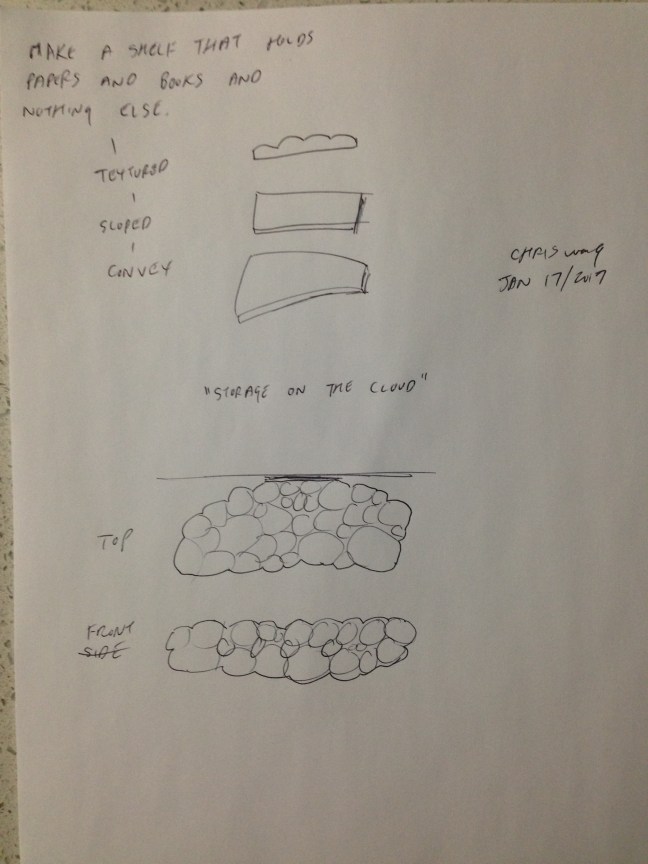 MAKE A SHELF THAT HOLDS
PAPERS AND BOOKS AND
NOTHING ELSE.
TEXTURED
SLOPED
CONVEX
CHRIS WONG
JAN 17/2017
"STORAGE ON THE CLOUD"
TOP
FRONT
SIDE